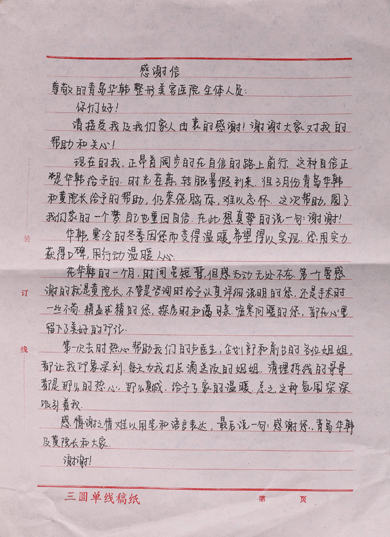 感谢信
尊敬的青岛华韩整形美容医院全体人员:
你们好!
请接受我及我们家人由衷的感谢!谢谢大家对我的
帮助和关心!
现在的我,正昂首阔步的在自信的路上前行,这种自信正
是华韩给予的.时光荏苒,转眼暑假到来,但3月份青岛华韩
和黄院长给予的帮助,仍萦绕脑海,难以忘怀.这次帮助,圆了
我们家的一个梦,自己也重回自信.在此想真挚的说一句:谢谢!
华韩,寒冷的冬季因你而变得温暖,希望得以实现.你用实力
获得口碑,用行动温暖人心.
在华韩的一个月,时间虽短暂,但感动无处不在.第一个要感
谢的就是黄院长,不管是咨询时给予认真详细说明的您,还是手术时
一丝不苟,精益求精的您,
留下了美好的印记.
第一次去时热心帮助我们的
都让我印象深刻.每天为我打点滴送饭的姐姐,清理
都是那么的热心,那么真诚,给予了家的温暖.总之,这种氛围深深
吸引着我.
感情谢之情难以用笔和语言表达,最后说一句:感谢您,青岛华韩
及黄院长和大家.
谢谢!
装
订
线
三圆单线稿纸
第 页